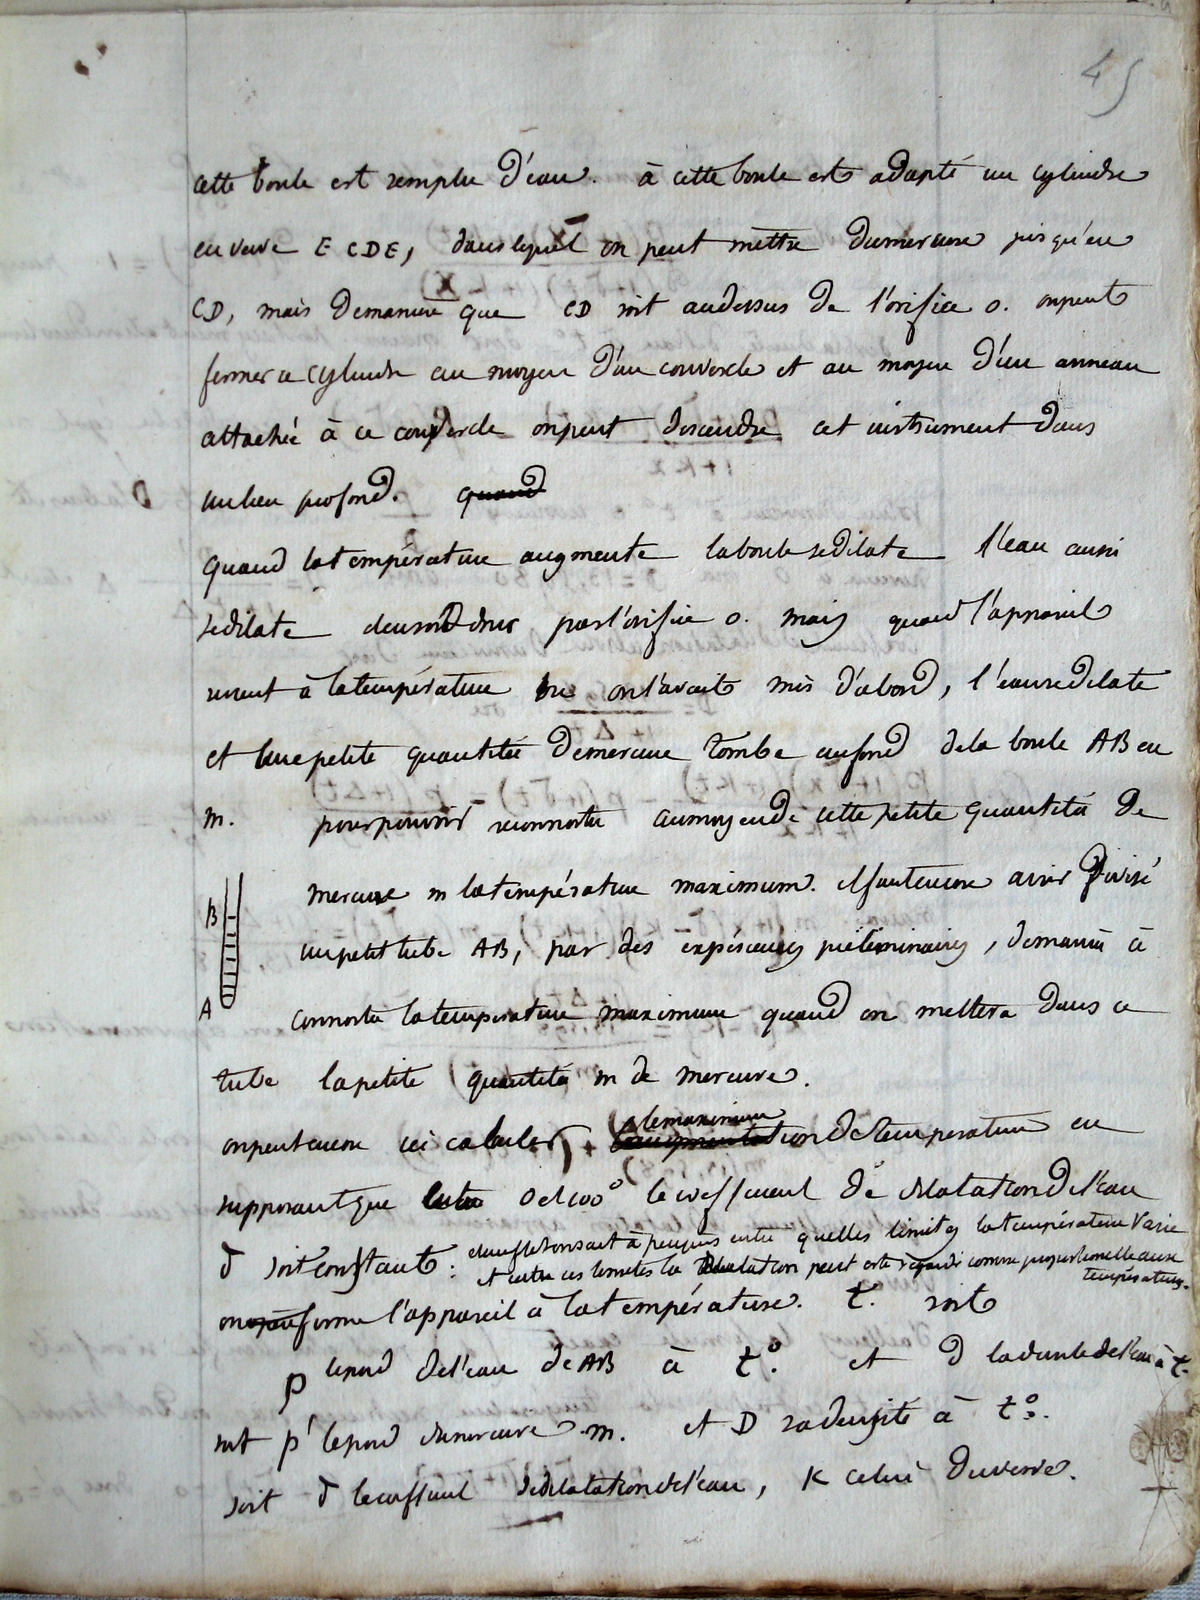 45
cette boule est remplie d'eau. à cette boule est adapté un cylindre
en verre E CDE, dans lequel on peut mettre du mercure jusqu'en
CD, mais de maniere que CD soit au dessus de l'orifice o. on peut
fermer ce cylindre au moyen d'un couvercle et au moyen d'un anneau
attaché à ce couvercle on peut descendre cet instrument dans
un lieu profond. quand
quand la température augmente la boule se dilate l'eau aussi
se dilate donc par l'orifice o. mais quand l'appareil
revient à la température on l'avait mis d'abord, l'eau se dilate
et une petite quantité de mercure tombe au fond de la boule AB en
m. pour pouvoir reconnoitre au moyen de cette petite quantité de
mercure m la température maximum. il faut encore avoir divisé
B
un petit tube AB, par des expériences préliminaires, de maniere à
A
connoitre la temperature maximum quand on mettera dans ce
tube la petite quantité m de mercure.
on peut encore ici calculer le maximum de temperature en
supposant que entre 0 et 100° le coefficient de dilatation de l'eau
δ soit constant: il suffit on sait à peu près entre quelles limites la température varie
et entre ces limites la dilatation peut être regardé comme proportionnelle aux
températures.
on ferme l'appareil à la température. t. soit
p le poid de l'eau de AB à t°. et d la densité de l'eau à t.
soit p' le poid du mercure m. et D sa densité à t°.
soit δ le coefficient de dilatation de l'eau, K celui du verre.